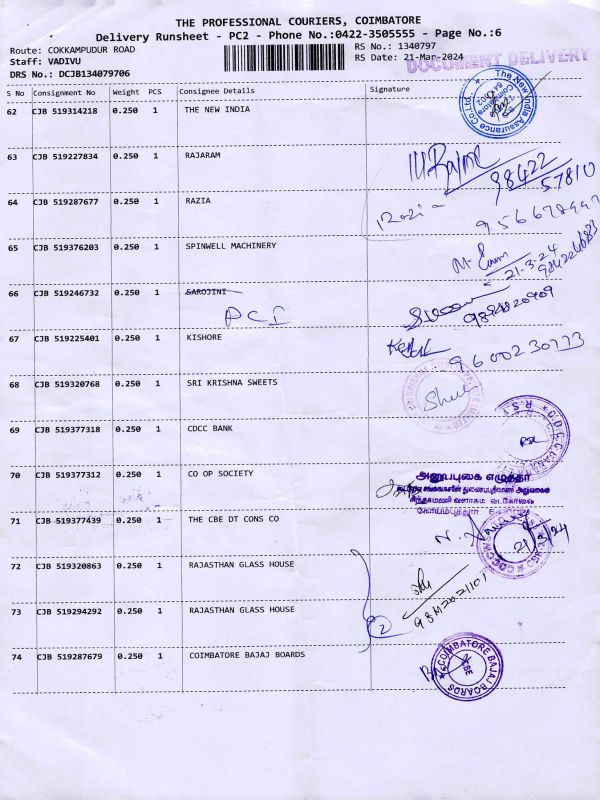 THE PROFESSIONAL COURIERS, COIMBATORE
Delivery Runsheet - PC2 - Phone No.:0422-3505555 - Page No.:6
Route: COKKAMPUDUR ROAD
RS No.: 1340797
Staff: VADIVU
RS Date: 21-Mar-2024
DOCUMENT DELIVERY
DRS No.: DCJB134079706
S No Consignment No Weight PCS Consignee Details Signature
The New India Assurance Co.Ltd.
Coimbatore
62 CJB 519314218 0.250 1 THE NEW INDIA
63 CJB 519227834 0.250 1 RAJARAM
98422
57810
64 CJB 519287677 0.250 1 RAZIA
Razia
65 CJB 519376203 0.250 1 SPINWELL MACHINERY
21-3-24
66 CJB 519246732 0.250 1 SAROJINI
67 CJB 519225401 0.250 1 KISHORE
9600230773
68 CJB 519320768 0.250 1 SRI KRISHNA SWEETS
69 CJB 519377318 0.250 1 CDCC BANK
70 CJB 519377312 0.250 1 CO OP SOCIETY
அனுபபுகை எழுத்தர்
71 CJB 519377439 0.250 1 THE CBE DT CONS CO
21/3/24
72 CJB 519320863 0.250 1 RAJASTHAN GLASS HOUSE
73 CJB 519294292 0.250 1 RAJASTHAN GLASS HOUSE
2
74 CJB 519287679 0.250 1 COIMBATORE BAJAJ BOARDS
COIMBATORE BAJAJ BOARDS
CBE